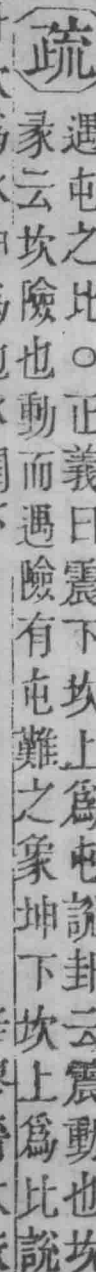 疏
遇屯之比○正義曰震下坎上爲屯說卦云震動也坎
彖云坎險也動而遇險有屯難之象坤下坎上爲比說